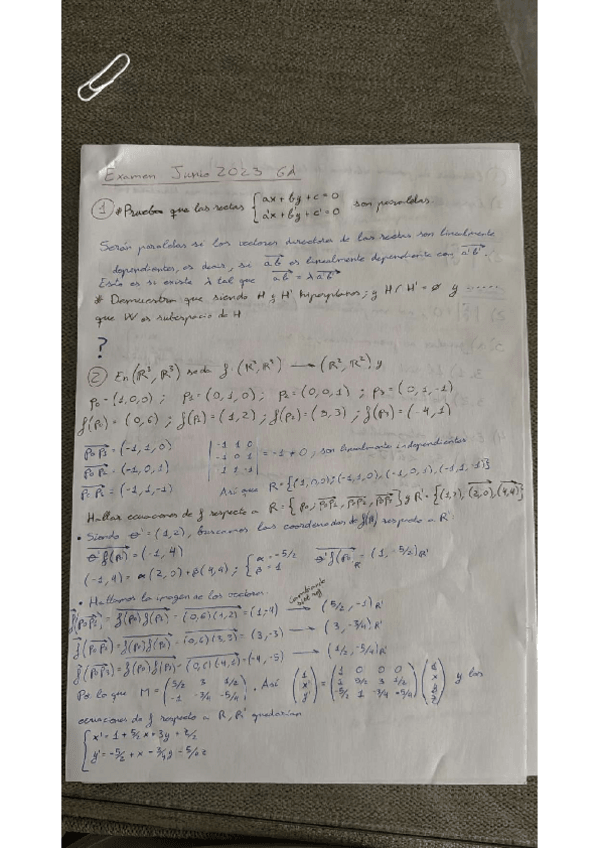 Examen Junio 2023 GA
① # Prueba que las rectas { ax + by + c = 0 son paralelas.
a'x + b'y + c' = 0
Serán paralelas si los vectores directores de las rectas son linealmente
dependientes, es decir, si ab es linealmente dependiente con a'b'.
Esto es si existe λ tal que ab = λ a'b'
# Demuestra que siendo H y H' hiperplanos; y H ∩ H' = ∅ y ......
que W es subespacio de H
?
② En (R³, R³) sea f: (R³, R³) → (R², R²) y
p₀ = (1,0,0) ; p₁ = (0,1,0) ; p₂ = (0,0,1) ; p₃ = (0,1,-1)
f(p₀) = (0,6) ; f(p₁) = (1,2) ; f(p₂) = (3,3) ; f(p₃) = (-4,1)
p₀p₁ = (-1,1,0)
p₀p₂ = (-1,0,1)
p₀p₃ = (-1,1,-1)
| -1 1 0 |
| -1 0 1 | = -1 ≠ 0, son linealmente independientes
| 1 1 -1 |
Así que R = {(1,0,0); (-1,1,0), (-1,0,1), (-1,1,-1)}
Hallar ecuaciones de f respecto a R = {p₀, p₀p₁, p₀p₂, p₀p₃} y R' = {(1,2), (2,0), (4,4)}
• Siendo θ' = (1,2), buscamos las coordenadas de f(p₀) respecto a R'
θ'f(p₀) = (-1,4)
(-1,4) = α(2,0) + β(4,4) ; { α = -5/2
β = 1
• Hallamos la imagen de los vectores
f(p₀p₁) = f(p₀)f(p₁) = (0,6)(1,2) = (1,-4) → (5/2, -1)R'
f(p₀p₂) = f(p₀)f(p₂) = (0,6)(3,3) = (3,-3) → (3, -3/4)R'
f(p₀p₃) = f(p₀)f(p₃) = (0,6)(-4,1) = (-4,-5) → (1/2, -5/4)R'
Por lo que M = ( 5/2 3 1/2
-1 -3/4 -5/4 ) . Así ( 1 x' y' ) = ( 1 0 0 0
1 5/2 3 1/2
-5/2 1 -3/4 -5/4 ) y las
ecuaciones de f respecto a R, R' quedarían
{ x' = 1 + 5/2 x + 3y + z/2
y' = -5/2 + x - 3/4 y - 5/4 z